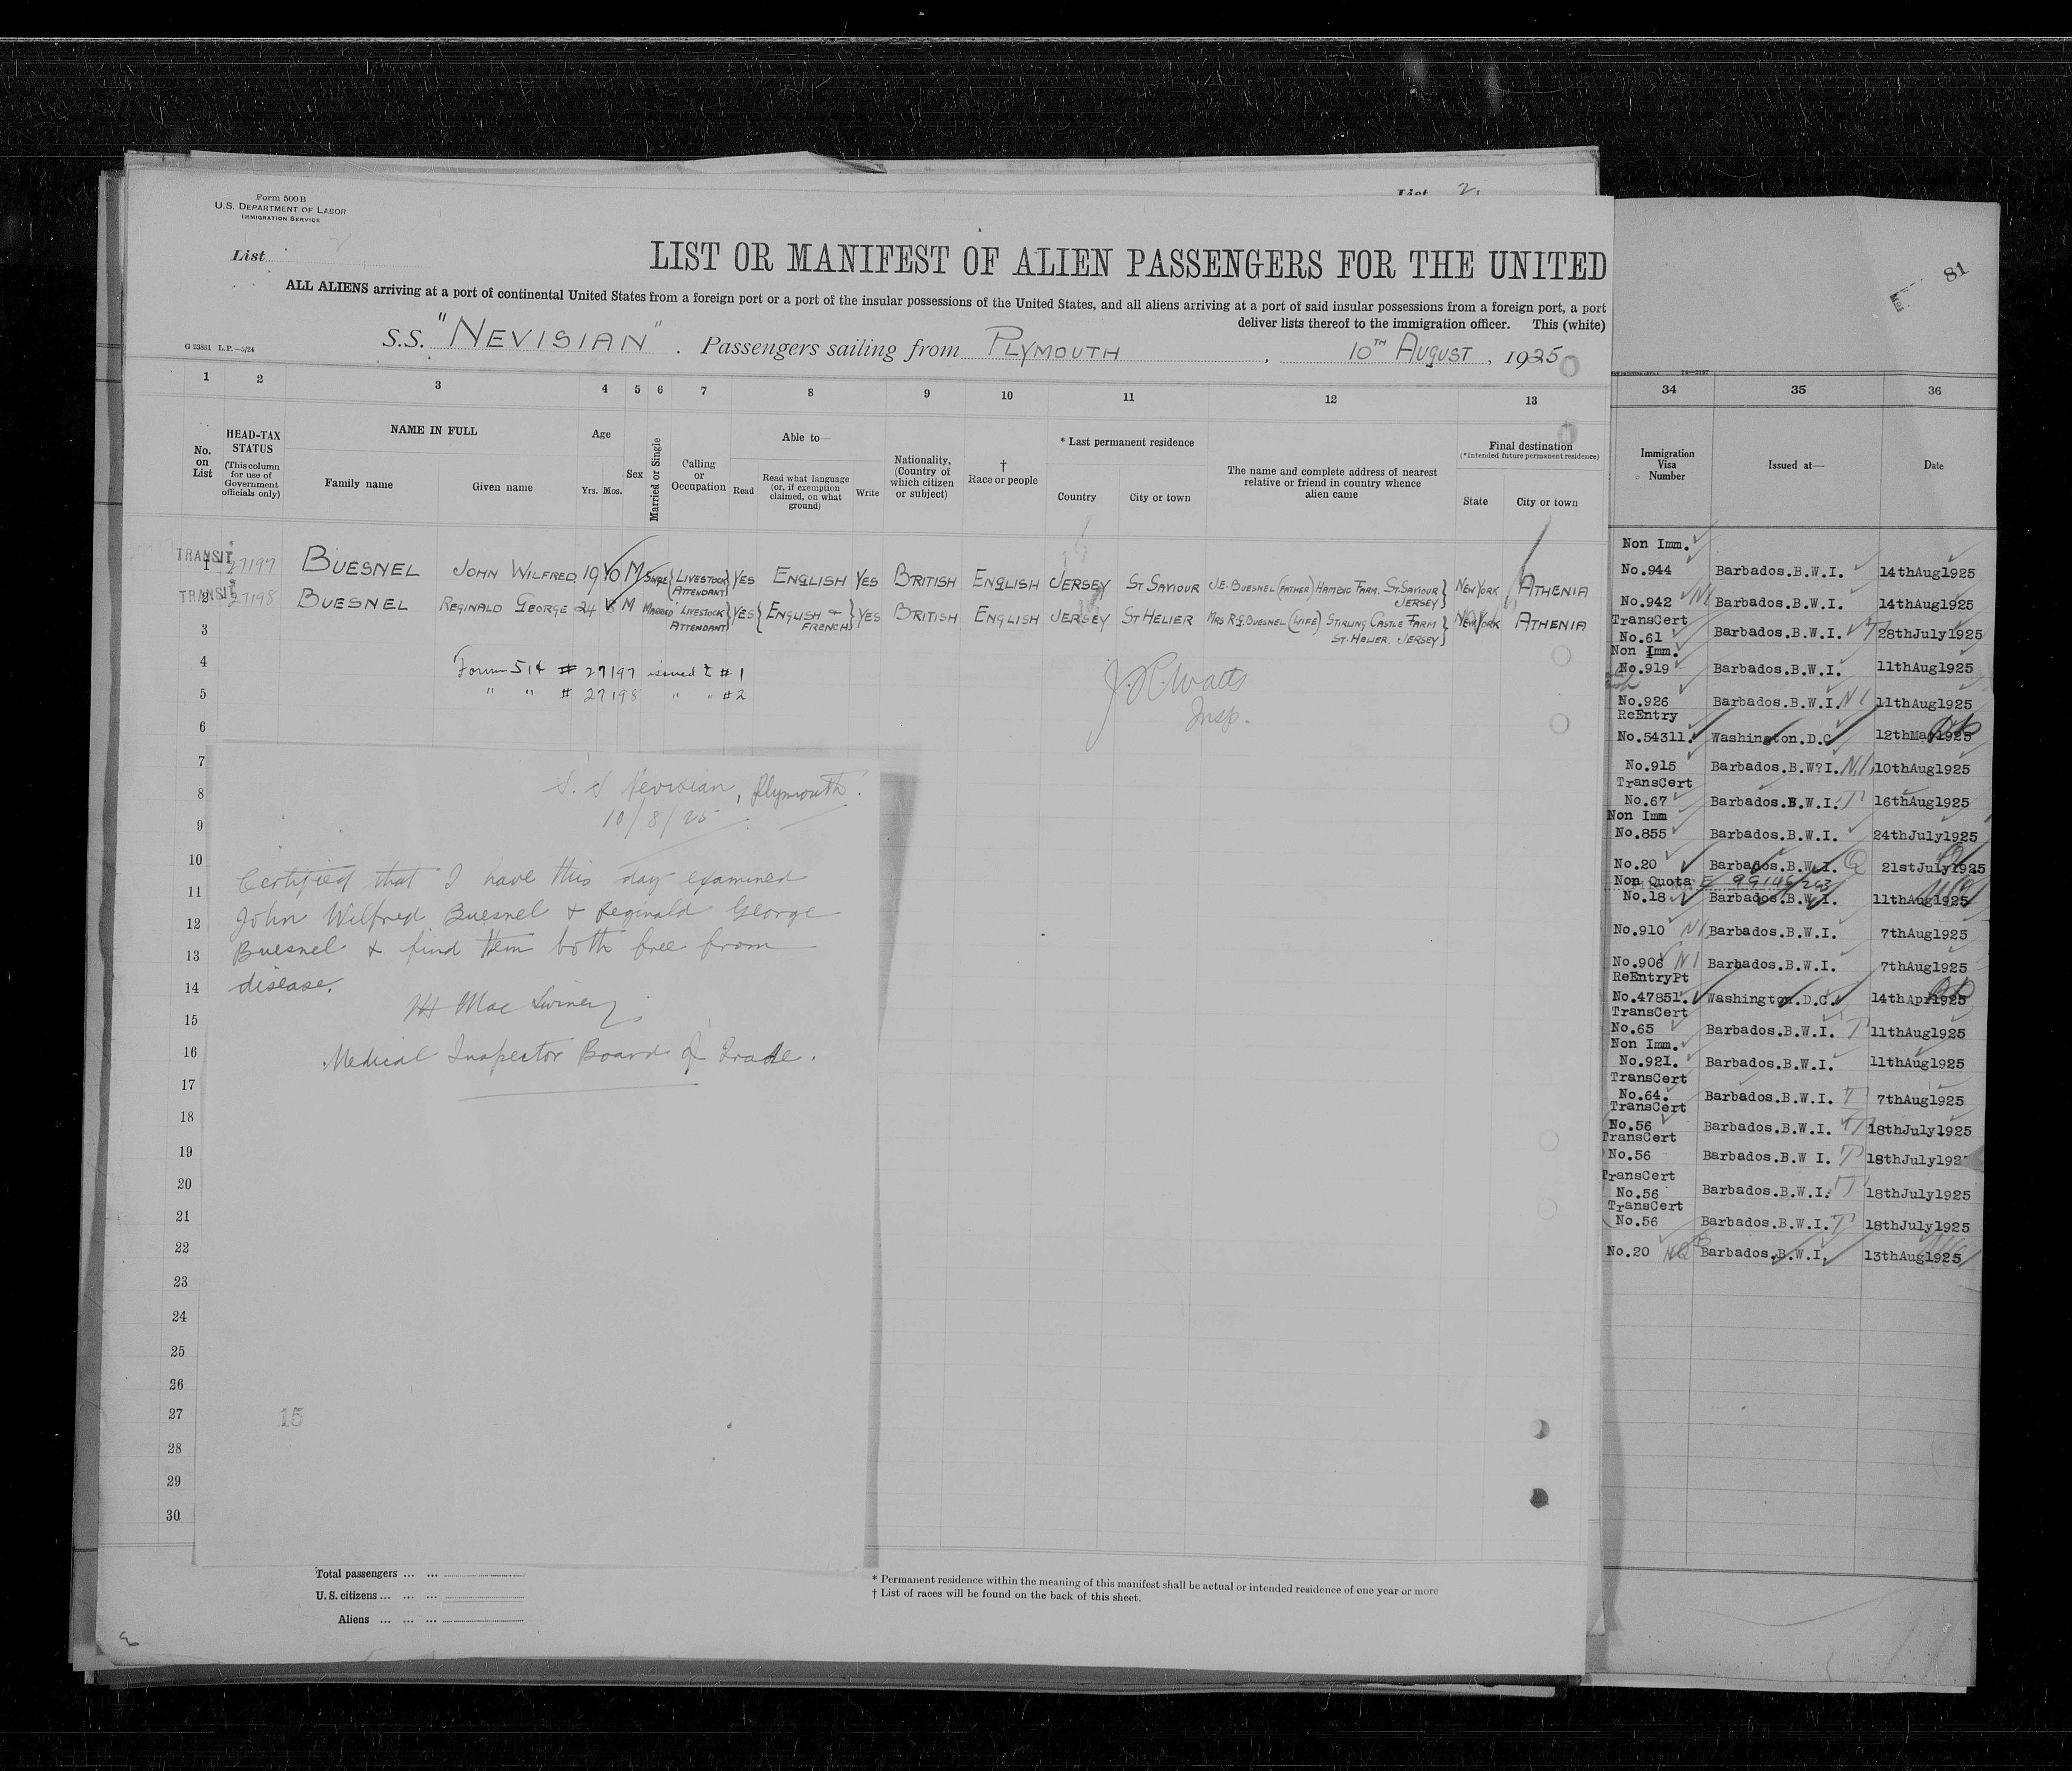 Form 500 B
U.S. DEPARTMENT OF LABOR
IMMIGRATION SERVICE
List 2.
List
LIST OR MANIFEST OF ALIEN PASSENGERS FOR THE UNITED
ALL ALIENS arriving at a port of continental United States from a foreign port or a port of the insular possessions of the United States, and all aliens arriving at a port of said insular possessions from a foreign port, a port
deliver lists thereof to the immigration officer. This (white)
G 23831 L.P.—5/24
S.S. "NEVISIAN". Passengers sailing from PLYMOUTH, 10TH AUGUST, 1925
1 2 3 4 5 6 7 8 9 10 11 12 13
No. on List
HEAD-TAX STATUS
(This column for use of Government officials only)
NAME IN FULL
Family name Given name
Age
Yrs. Mos.
Sex
Married or Single
Calling or Occupation
Able to—
Read
Read what language (or, if exemption claimed, on what ground)
Write
Nationality, (Country of which citizen or subject)
† Race or people
* Last permanent residence
Country City or town
The name and complete address of nearest relative or friend in country whence alien came
Final destination
(*Intended future permanent residence)
State City or town
TRANSIT
1 27197 BUESNEL JOHN WILFRED 19 M SINGLE {LIVESTOCK ATTENDANT} YES ENGLISH YES BRITISH ENGLISH JERSEY ST SAVIOUR J.E. BUESNEL (FATHER) FARM. ST. SAVIOUR JERSEY} NEW YORK ATHENIA
TRANSIT
2 27198 BUESNEL REGINALD GEORGE 24 M MARRIED LIVESTOCK ATTENDANT} YES {ENGLISH & FRENCH} YES BRITISH ENGLISH JERSEY ST HELIER MRS R.G. BUESNEL (WIFE) STIRLING CASTLE FARM ST. HELIER. JERSEY} NEW YORK ATHENIA
3
4 Form 514 # 27197 issued to #1
5 " " # 27198 " " #2
J. C. Watts
Insp.
6
7
8
9
10
11
12
13
14
15
16
17
18
19
20
21
22
23
24
25
26
27
28
29
30
S. S Nevisian, Plymouth.
10/8/25
Certified that I have this day examined
John Wilfred Buesnel & Reginald George
Buesnel & find them both free from
disease.
Mac Swiney
Medical Inspector Board of Trade.
15
Total passengers ... ...
U.S. citizens ... ... ...
Aliens ... ... ...
* Permanent residence within the meaning of this manifest shall be actual or intended residence of one year or more
† List of races will be found on the back of this sheet.
81
34 35 36
Immigration Visa Number
Issued at—
Date
Non Imm.
No.944 Barbados.B.W.I. 14thAug1925
No.942 NI Barbados.B.W.I. 14thAug1925
TransCert
No.61 Barbados.B.W.I. T 28thJuly1925
Non Imm.
No.919 Barbados.B.W.I. 11thAug1925
No.926 Barbados.B.W.I. NI 11thAug1925
ReEntry
No.54311. Washington.D.C 12thMay1925
No.915 Barbados.B.W?I. N.I. 10thAug1925
TransCert
No.67 Barbados.B.W.I. T 16thAug1925
Non Imm
No.855 Barbados.B.W.I. 24thJuly1925
No.20 Barbados.B.W.I. Q 21stJuly1925
Non Quota
No.18 Barbados.B.W.I. 11thAug1925
No.910 NI Barbados.B.W.I. 7thAug1925
No.906 NI Barbados.B.W.I. 7thAug1925
ReEntryPt
No.47851. Washington.D.C. 14thApr1925
TransCert
No.65 Barbados.B.W.I. T 11thAug1925
Non Imm.
No.921. Barbados.B.W.I. 11thAug1925
TransCert
No.64. Barbados.B.W.I. T 7thAug1925
TransCert
No.56 Barbados.B.W.I. T 18thJuly1925
TransCert
No.56 Barbados.B.W I. T 18thJuly192
TransCert
No.56 Barbados.B.W.I. T 18thJuly1925
TransCert
No.56 Barbados.B.W.I. T 18thJuly1925
No.20 NQ Barbados.B.W.I. 13thAug1925